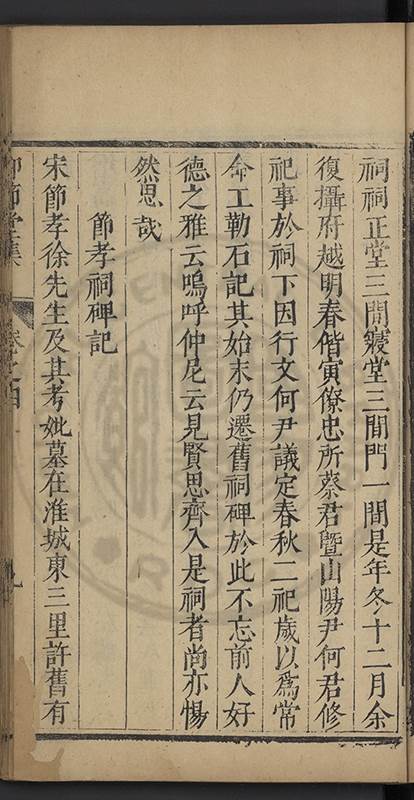 祠祠正堂三間寢堂三間門一間是年冬十二月余
復攝府越明春偕寅僚忠所蔡君暨山陽尹何君修
祀事於祠下因行文何尹議定春秋二祀歲以為常
命工勒石記其始末仍遷舊祠碑於此不忘前人好
德之雅云嗚呼仲尼云見賢思齊入是祠者尚亦惕
然思哉
節孝祠碑記
宋節孝徐先生及其考妣墓在淮城東三里許舊有
仰節堂集
卷之四